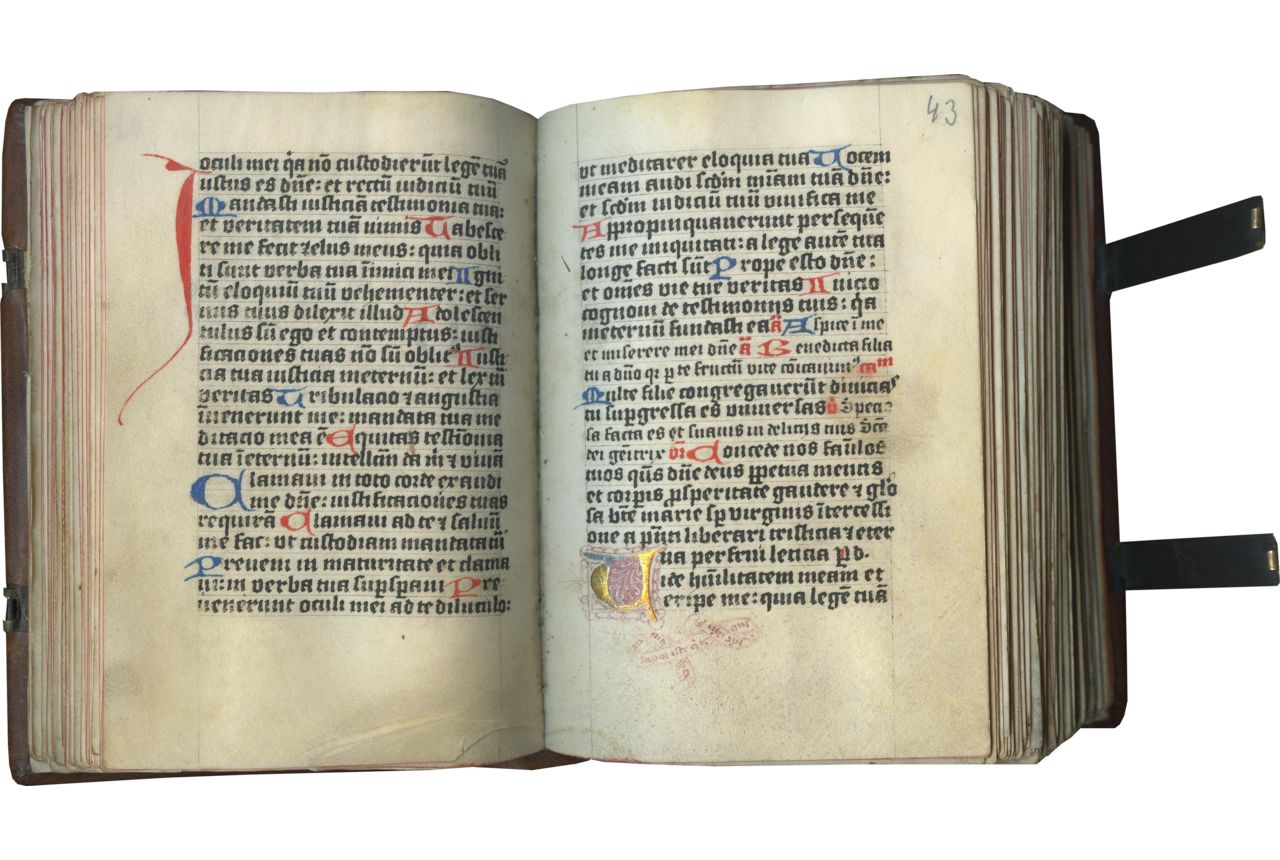 oculi mei q̄a nō custodierūt legē tuā
Iustus es dn̄e: et rectū iudiciū tuū
Mandasti iusticiā testimonia tua:
et veritatem tuā nimis Tabesce
re me fecit zelus meus: quia obli
ti sunt verba tua inimici mei Igni
tū eloquiū tuū vehementer: et ser
uus tuus dilexit illud Adolescen
tulus sū ego et contemptus: iusti
ficaciones tuas nō sū oblit9 Iusti
cia tua iusticia ineternū: et lex tua
veritas Tribulacio et angustia
inenerunt me: mandata tua me
ditacio mea ē Equitas testimonia
tua ī eternū: intellectū da m̄ et viuā
Clamaui in toto corde exaudi
me dn̄e: iustificaciones tuas
requirā Clamaui ad te et saluū
me fac: vt custodiam mandata tū
Preueni in maturitate et clama
ui: in verba tua sup̄sp̄aui Pre
uenerunt oculi mei ad te diluculo:
43
vt meditarer eloquia tua Vocem
meam audi scd̄m mīam tuā dn̄e:
et scd̄m iudiciū tuū viuifica me
Appropinquauerunt perseq̄ue
tes me iniquitati: a lege autē tua
longe facti sūt Prope esto dn̄e:
et om̄es vie tue veritas Inicio
cognoui de testimonijs tuis: q̄a
ineternū fundasti ea ā Aspice ī me
et miserere mei dn̄e ā Benedicta filia
tu a dn̄o q̄ p te fructū vite cōīcauim9 cam
Multe filie congregauerūt diuicias
tu sup̄gressa es vniuersas v̄ Specio
sa facta es et suauis in delicijs tuis sc̄ā
dei genitrix or̄ō Concede nos famulos
tuos q̄s dn̄e deus p̄petua mentis
et corp̄is p̄speritate gaudere et glō
sa bt̄e marie sp̄ virginis ītercessi
one a p̄nti liberari tristicia et eter
na perfrui leticia P̄ d.
Vide hūilitatem meam et
eripe me: quia legē tuā